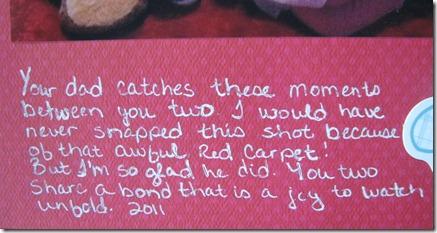 Your dad catches these moments
between you two. I would have
never snapped this shot because
of that awful Red Carpet!
But I'm so glad he did. You two
share a bond that is a joy to watch
unbold. 2011